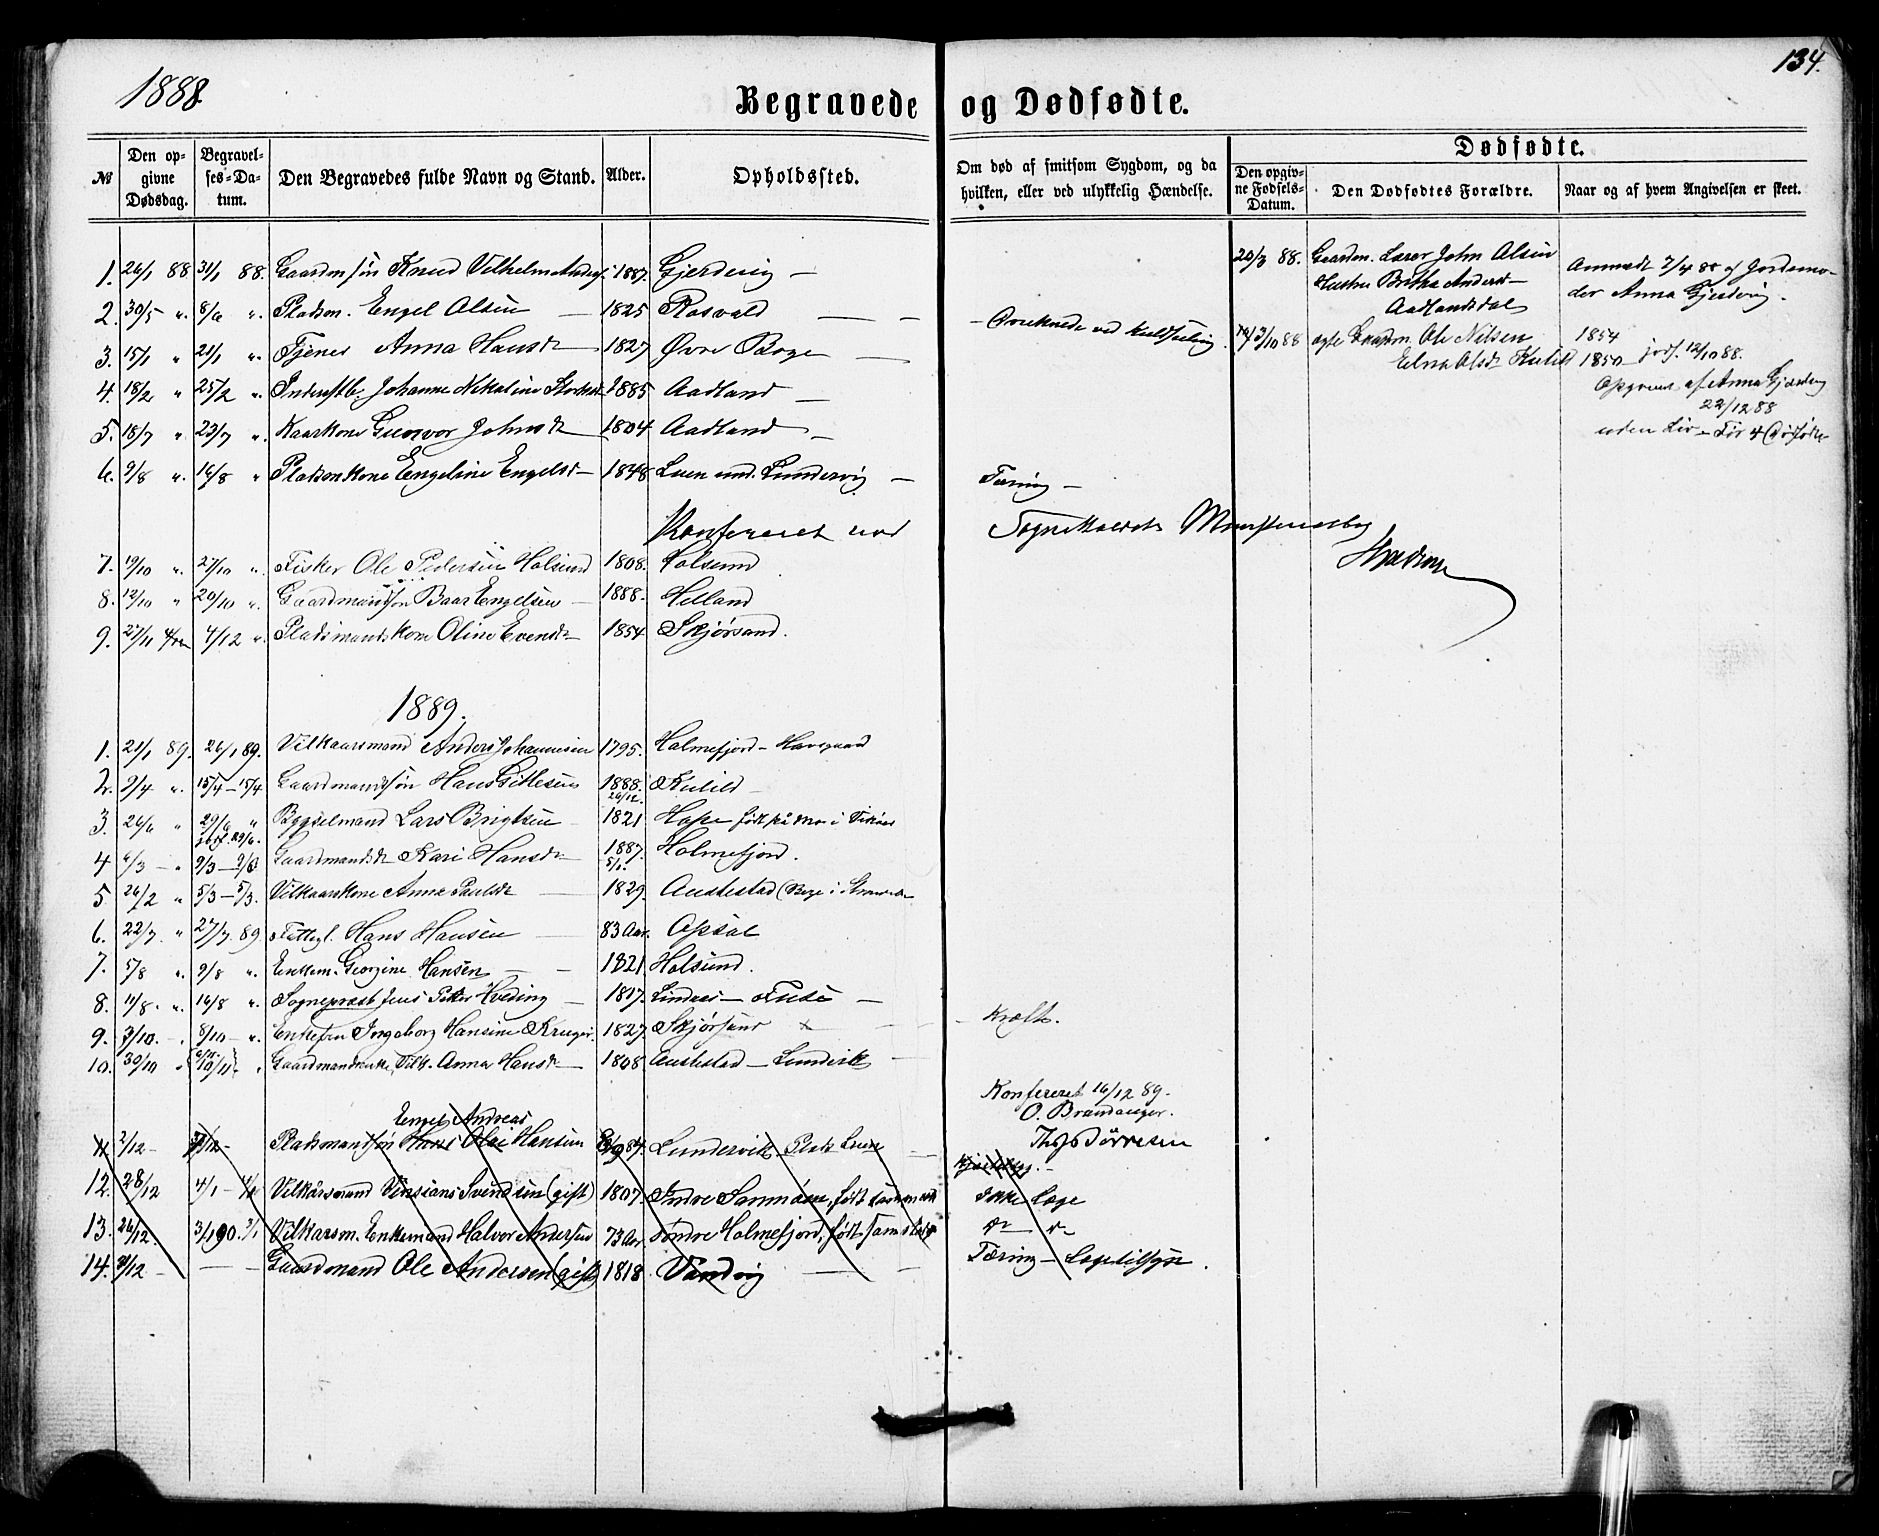 134.
1888.
Begravede og Dødfødte.
№
Den opgivne Dødsdag.
Begravelses-Datum.
Den Begravedes fulde Navn og Stand.
Alder.
Opholdssted.
Om død af smitsom Sygdom, og da hvilken, eller ved ulykkelig Hændelse.
Dødfødte.
Den opgivne Fødsels-Datum.
Den Dødfødtes Forældre.
Naar og af hvem Angivelsen er skeet.
1. 26/1 88 31/1 88. Gaardm søn Knud Vilhelm 1887. Gjerdevig —
20/3 88. Gaardm. Lærer John Olsen
Hustru Britha Andersd
Aadlandsdal
Anmeldt 7/4 88 af Jordemo-
der Anna Gjerdevig.
2. 30/5 ". 8/6 ". Pladsm. Engel Olsen — 1825 Rosvald — —
3. 15/1 " 21/1 ". Tjener Anna Hansd 1827 Øvre Boge —
— ved
3/10 88 ægte Gaardm. Ole Nilsen
Olsd Kulild
1854
1850 — jordf. 12/10 88.
af Anna Gjerdevig
22/12 88
uden Liv — Før 4 Dødfødte
4. 18/2 " 25/2 ". Johanne 1885 Aadland —
5. 18/7 " 23/7 ". Kaarkone Gunvor Johnsd 1804 Aadland —
6. 9/8 ". 16/8 " Pladsm kone Engeline Engelsd — 1848 Luen und. Lundervig — Tæring —
Konfereret med Sognekaldets Ministerialbog
7. 19/10 ". 27/10 ". Fisker Ole Pedersen Holsund 1808. Holsund
8. 12/10 " 20/10 ". Gaardmandssøn Baar Engelsen — 1888. Helland
9. 27/11 4/12 ". Pladsmandskone Oline Evensd — 1854 Skjørsand.
1889.
1. 21/1 89. 26/1 89. Vilkaarsmand Anders Johannesen 1795. Holmefjord — Havsgaard
2. 9/4 ". 15/4 — 15/4 Gaardmandssøn Hans Gitlesen 1888. 26/12. Kulild —
3. 26/6 " 29/6 " Bygselmand Lars Brigtsen — 1821 Hope født på Mo i Vikøer
jordf. 29/6.
4 6/3 — " 9/3 — 9/3 Gaardmandsd Kari Hansd — 1887. 5/1. Holmefjord.
5 26/2 " 5/3 — 5/3. Vilkaarskone Anna Paulsd — 1829. Austestad (Boge i
6. 22/7. " 27/7. 89 Hans Hansen — 83 Aar. Opsal
7. 5/8 ". 9/8 ". Enkem. Georgine Hansen — — 1821 Holsund.
8. 11/8. ". 16/8 ". Sognepræst Jens Peter Hveding — 1817. Lindnes — Fuse —
9. 3/10. — . 8/10 — ". Enkefru Ingeborg Hansine Krüger. 1827. Skjørsand — — Kræft.
10. 30/10 " /11 — . Gaardmandsenke, Vilk. Anna Hansd — 1808 Austestad — Lundervik —
Konfereret 16/12 89.
O. Brandanger.
Ths Tørresen
Engel Andreas
11 2/12 — /12 — Pladsmandssøn Hans Olai Hansen 84. Lundervik Plads Luen —
12. 28/12 4/1 — Vilkårsmand Vinsians Svendsen (gift) 1807. Indre Samnøen, født Ikke Læge
13. 26/12. 3/1 90. 3/1 Vilkarsm. Enkemand Halvor Andersen 73 Aar Søndre Holmefjord, født
14. 9/12 — — — Gaardmand Ole Andersen (gift) 1818. Vandvig — — Tæring — Lægetilsyn.